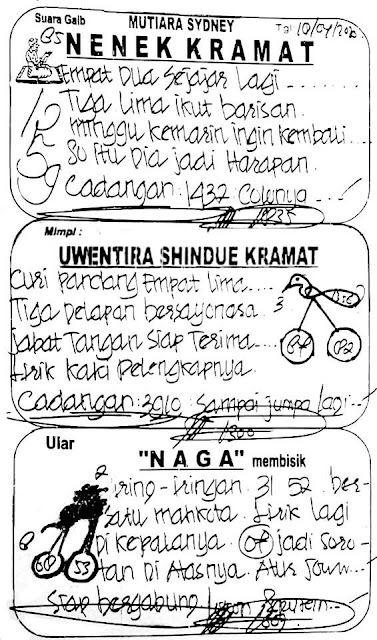 Suara Gaib
MUTIARA SYDNEY
Tgl 10/04/
NENEK KRAMAT
Empat Dua Sejajar lagi ........
Tiga Lima ikut barisan.
minggu kemarin ingin kembali....
80 itu Dia jadi Harapan.
Cadangan : 1432 : ....
Mimpi :
UWENTIRA SHINDUE KRAMAT
Curi pandang Empat Lima....
Tiga Delapan bersayonasa.
3
jabat Tangan Siap Terima....
82
lirik kaki pelengkapnya.
Cadangan : 3910 : Sampai jumpa lagi
1300
Ular
"NAGA" membisik
2
iring-iringan. 31 52. ber-
satu mahkota. lirik lagi
di kepalanya. 07 jadi Soro-
53
tan Di Atasnya.
Siap bergabung